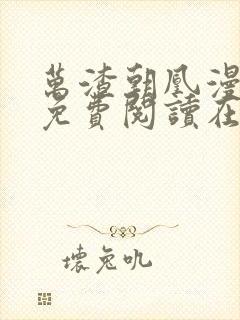 萬渣朝凰漫
免費閱讀在
壞兔吼